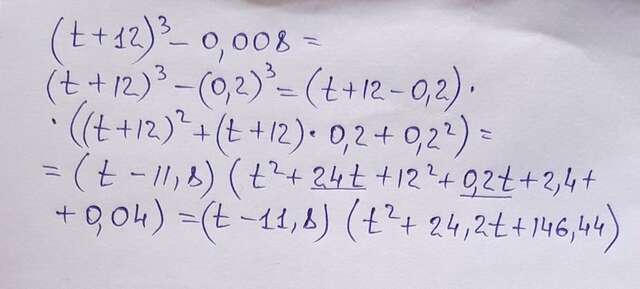 (t+12)³ − 0,008 =
(t+12)³ − (0,2)³ = (t+12−0,2)·
·((t+12)² + (t+12)·0,2 + 0,2²) =
= (t − 11,8) (t² + 24t + 12² + 0,2t + 2,4 +
+ 0,04) = (t − 11,8) (t² + 24,2t + 146,44)